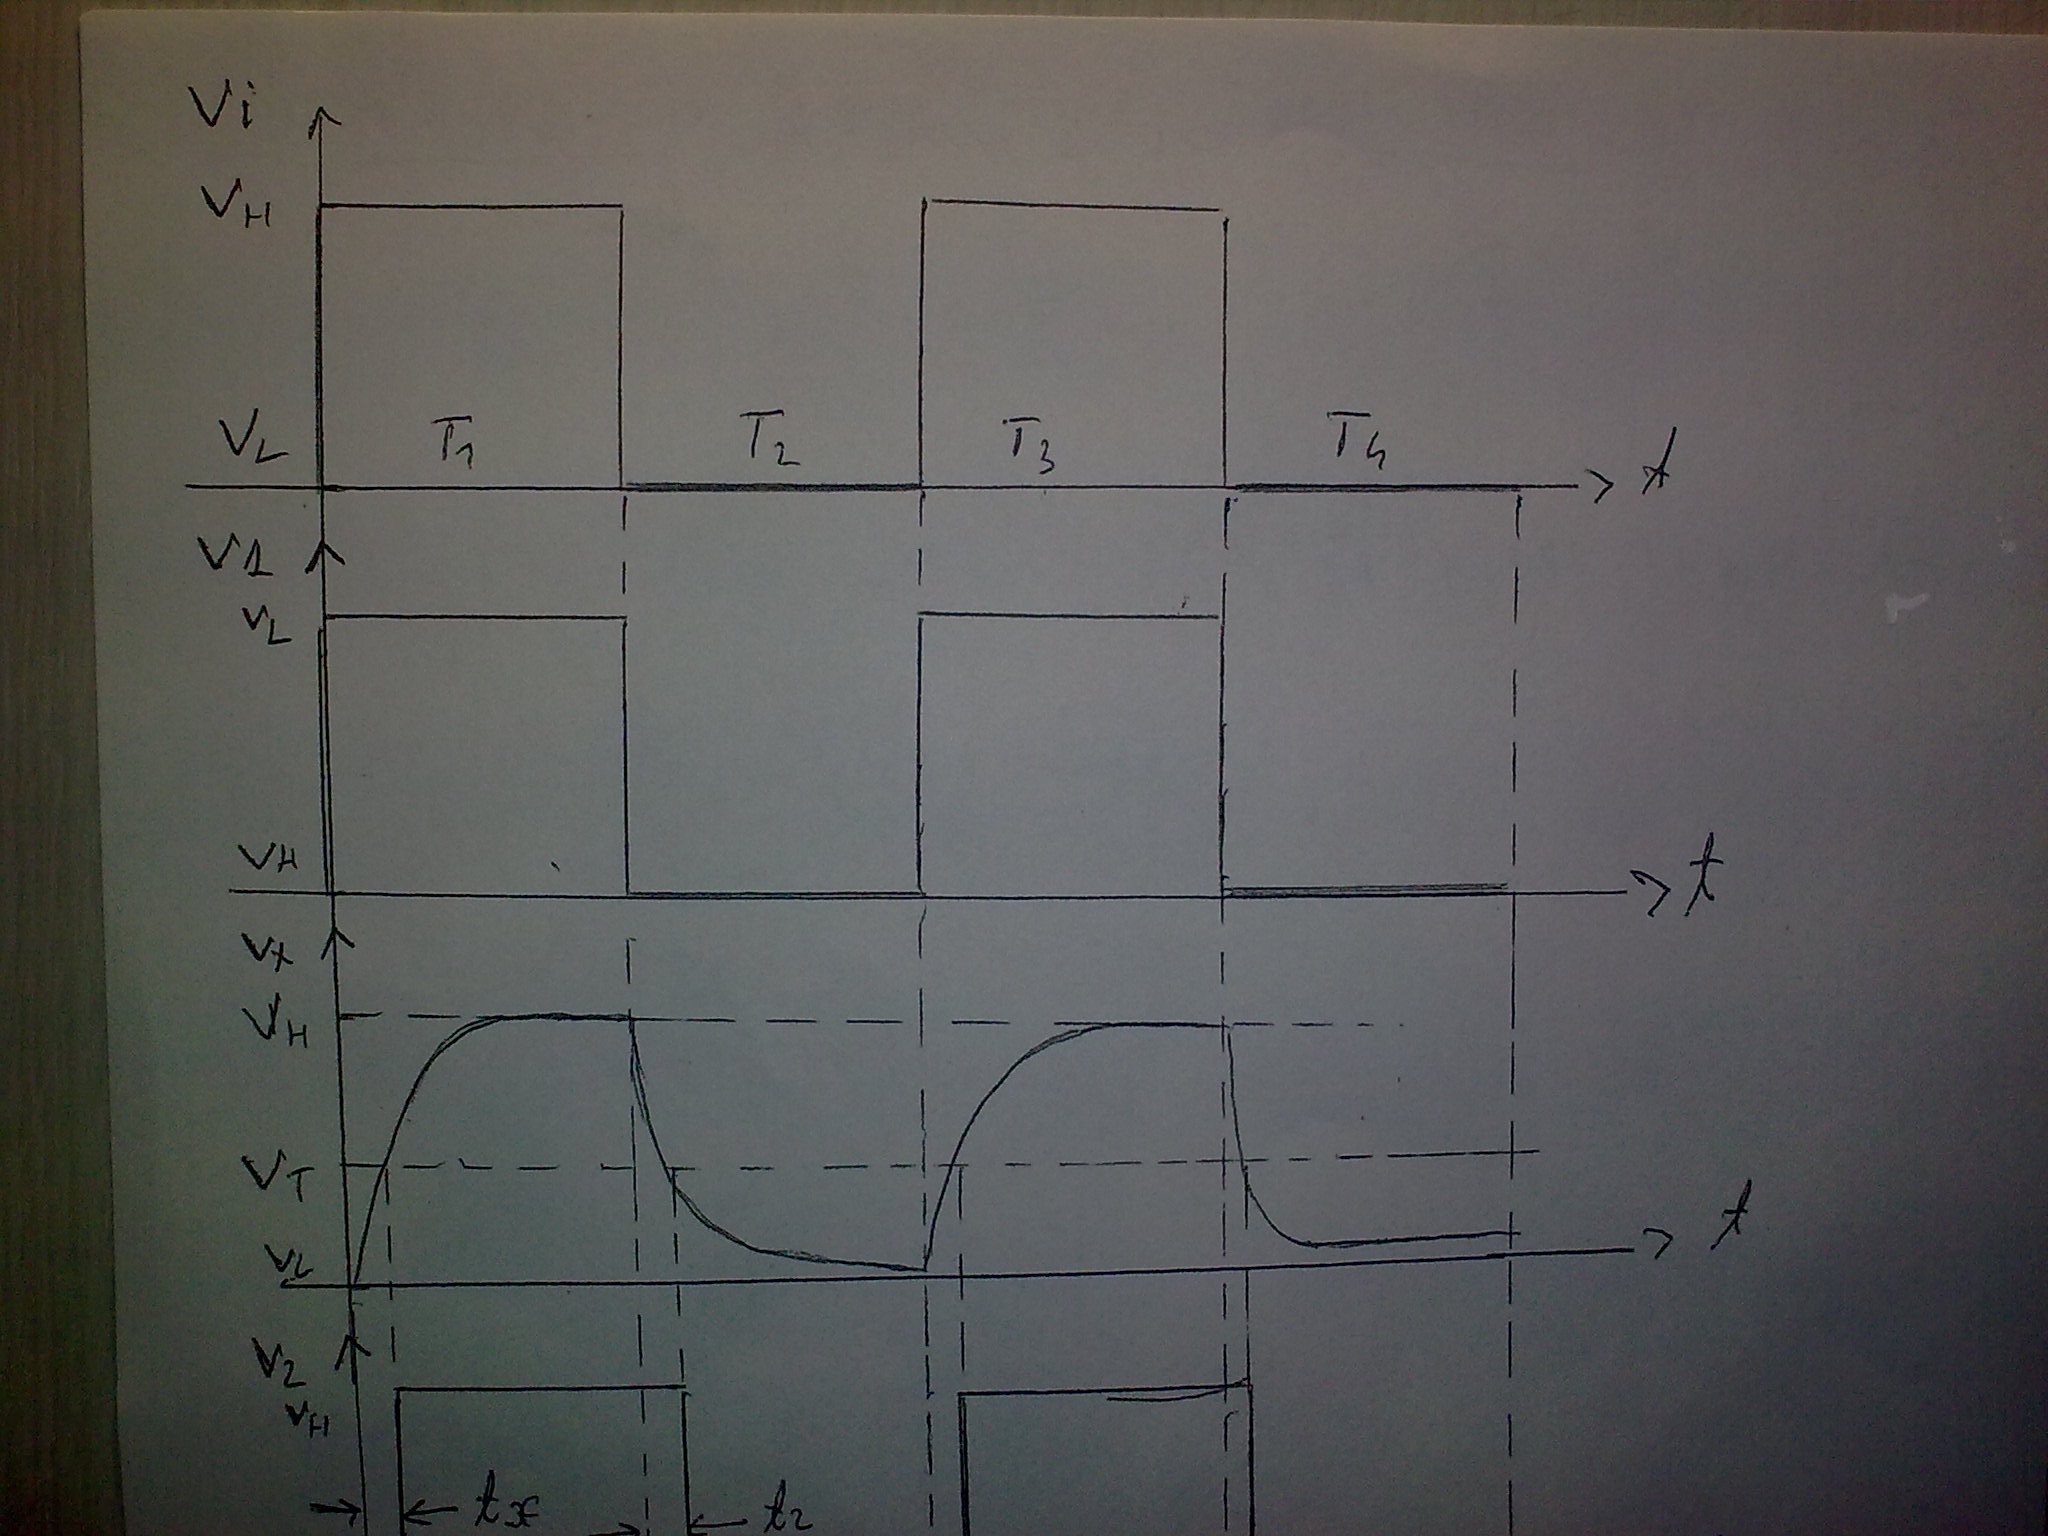 Vi
VH
VL T1 T2 T3 T4 t
V1
VL
VH t
Vx
VH
VT
VL t
V2
VH
tx t2